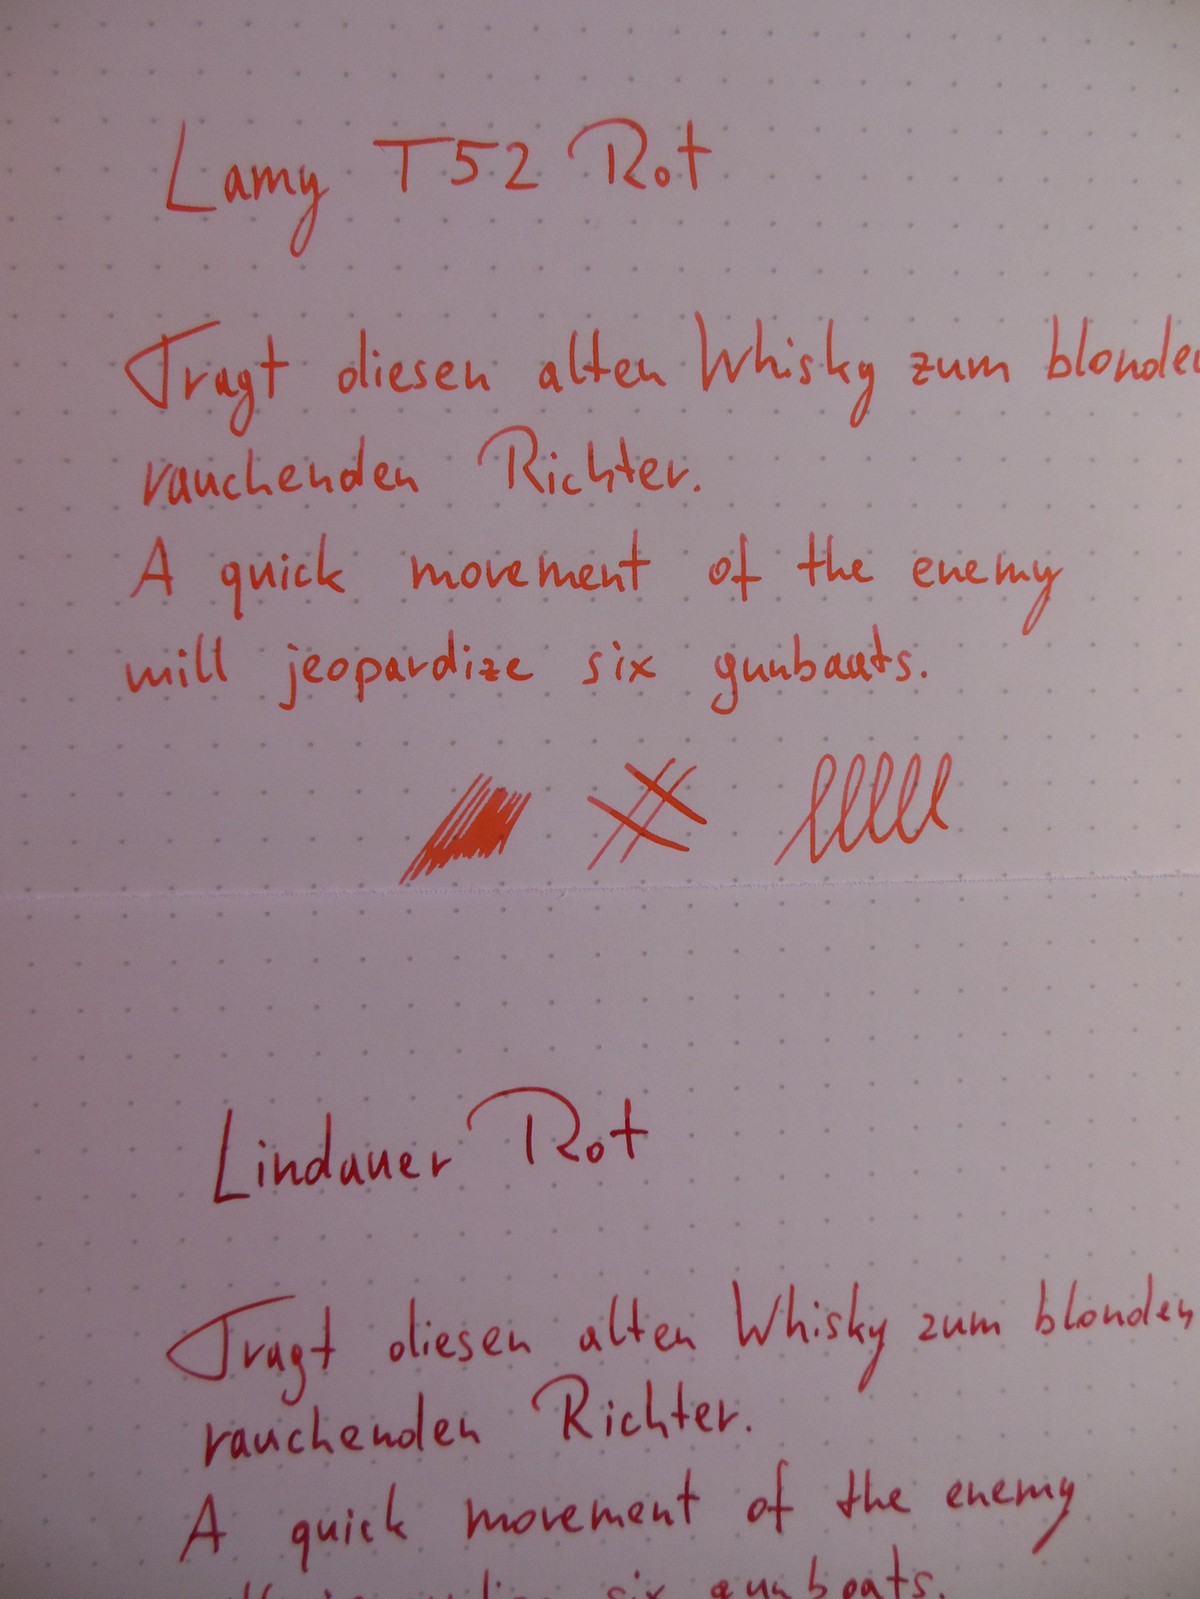 Lamy T52 Rot
Tragt diesen alten Whisky zum blonden
rauchenden Richter.
A quick movement of the enemy
will jeopardize six gunbaats.
Lindauer Rot
Tragt diesen alten Whisky zum blonden
rauchenden Richter.
A quick movement of the enemy
six gunboats.